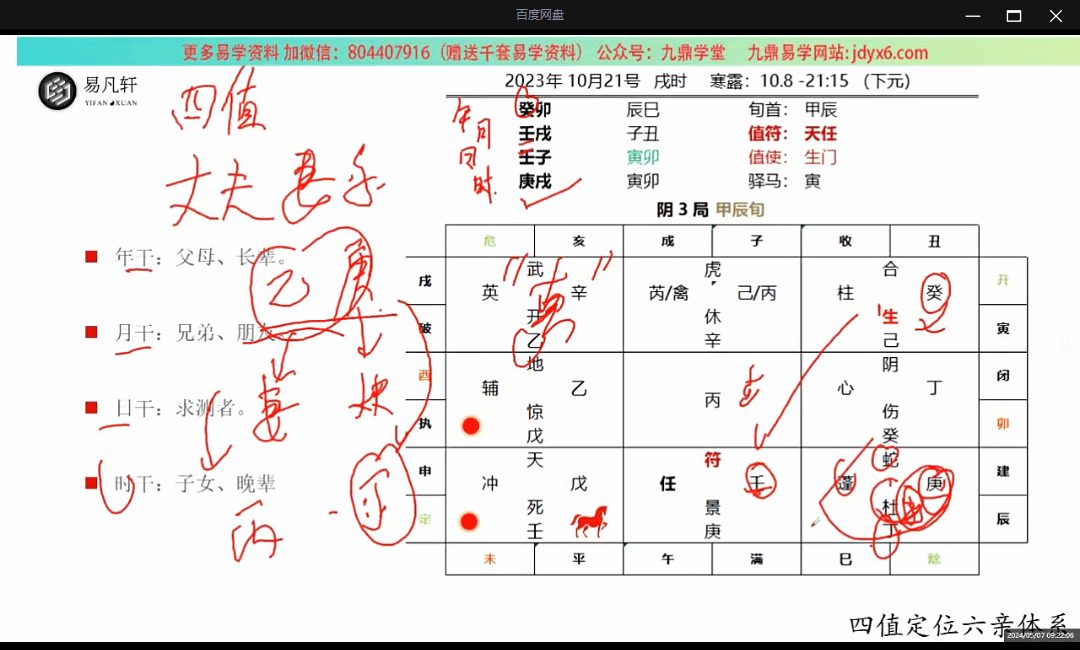 百度网盘
更多易学资料 加微信：804407916（赠送千套易学资料） 公众号：九鼎学堂 九鼎易学网站:jdyx6.com
易凡轩
YIFAN XUAN
2023年 10月21号 戌时 寒露：10.8 -21:15 (下元)
癸卯 辰巳 旬首： 甲辰
壬戌 子丑 值符： 天任
壬子 寅卯 值使： 生门
庚戌 寅卯 驿马： 寅
年月
日
时
四值
丈夫
阴 3 局 甲辰旬
危 亥 成 子 收 丑
年干：父母、长辈。
月干：兄弟、朋友。
日干：求测者。
时干：子女、晚辈
戌 武 虎 合 开
英 辛 芮/禽 己/丙 柱 癸
破 开 休 生 寅
乙 辛 己
酉 地 阴 闭
辅 乙 丙 心 丁
执 惊 伤 卯
戊 癸
申 天 符 蛇 建
冲 戊 任 壬 蓬 庚
定 死 景 杜 辰
壬 庚 丁
未 平 午 满 巳 除
四值定位六亲体系
2024/05/07 09:22:06